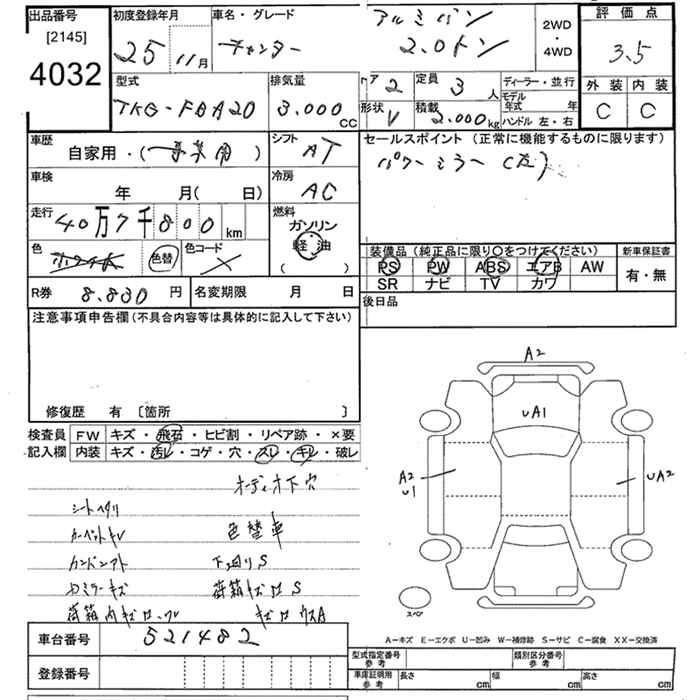 出品番号
[2145]
4032
初度登録年月
25 11月
車名・グレード
キャンター
アルミバン
2.0トン
2WD
・
4WD
評価点
3.5
外装 内装
C C
型式
TKG-FBA20
排気量
3.000 CC
ドア 2
定員 3人
形状 V
積載 2.000kg
ディーラー・並行
モデル
年式 年
ハンドル 左・右
車歴
自家用・(事業用)
シフト
AT
セールスポイント(正常に機能するものに限ります)
パワーミラー(左)
車検
年 月( 日)
冷房
AC
走行
40万7千800km
燃料
ガソリン
軽油
( )
色
ホワイトK
色替
色コード
R券 8.830円
名変期限 月 日
装備品(純正品に限り○をつけてください)
PS PW ABS エアB AW
SR ナビ TV カワ
新車保証書
有・無
後日品
注意事項申告欄(不具合内容等は具体的に記入して下さい)
修復歴 有 〔箇所 〕
検査員
記入欄
FW キズ・飛石・ヒビ割・リペア跡・×要
内装 キズ・汚レ・コゲ・穴・スレ・キレ・破レ
オーディオ下穴
シートヘタリ
カーペットキレ
色替車
下回りS
荷箱キズロS
A2
UA1
A2
U1
UA2
スペア
車台番号 521482
登録番号
A-キズ E-エクボ U-凹み W-補修跡 S-サビ C-腐食 XX-交換済
型式指定番号
参考
類別区分番号
参考
車庫証明用
参考
長さ cm
幅 cm
高さ cm